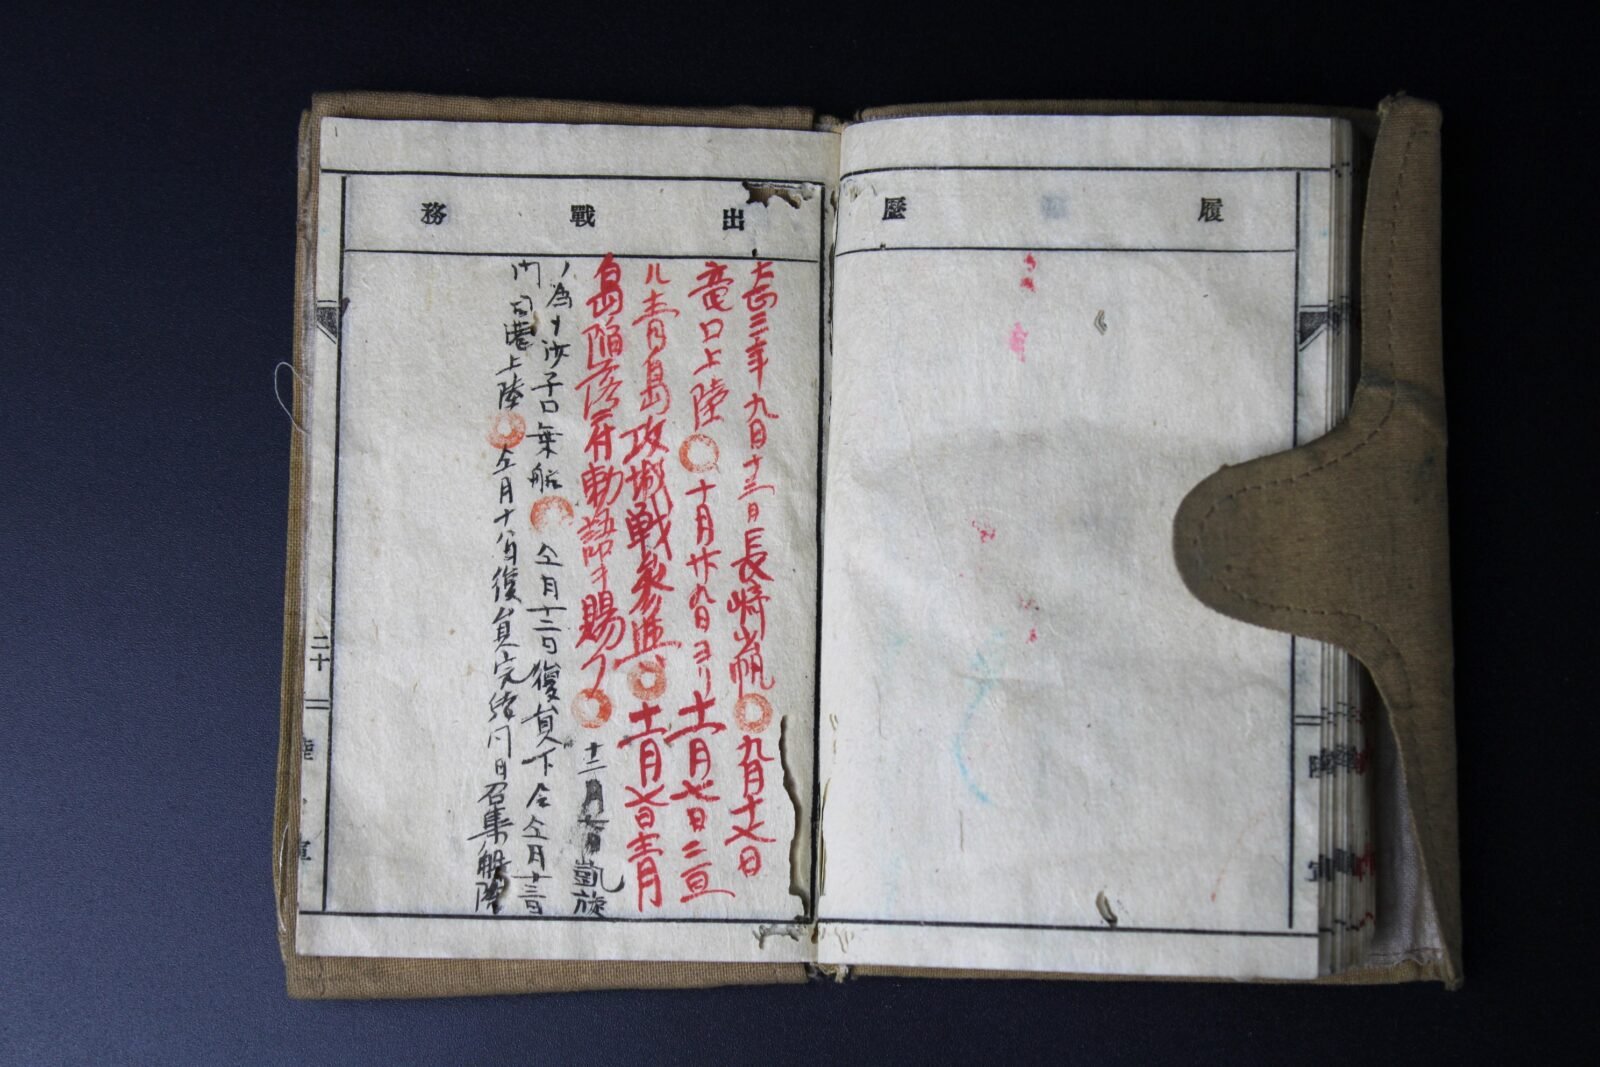 履歴
出戰務
大正三年九月十三日長崎出帆九月十七日
竜口上陸十月廿九日ヨリ十一月七日ニ亘
ル青島攻城戦参與十一月七日青
島陥落ニ付勅語ヲ賜フ十二月 凱旋
ノ為メ沙子口乗船仝月十二日復員下令仝月十三日
門司港上陸仝月十八日復員完結同日召集解除
二十
陸軍